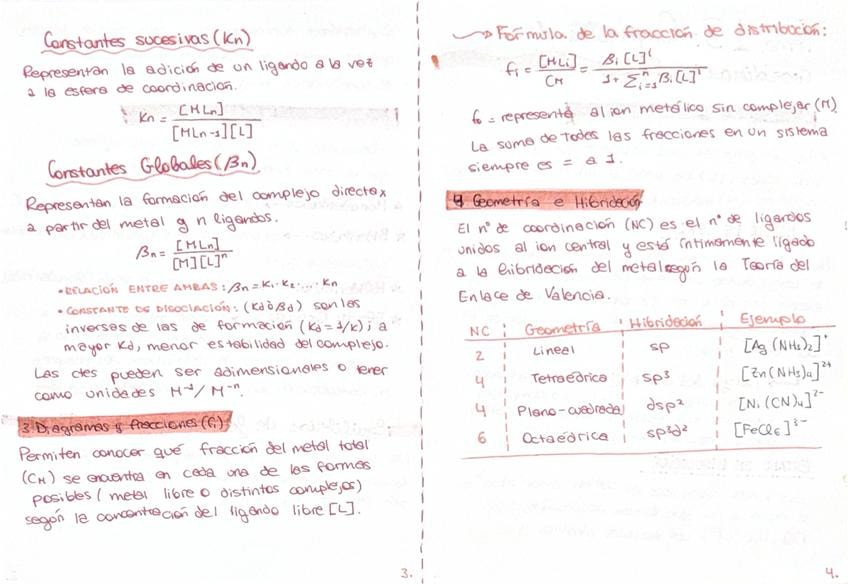 Constantes sucesivas (Kn)
Representan la adición de un ligando a la vez
a la esfera de coordinación.
Kn = [MLn] / [MLn-1][L]
Constantes Globales (βn)
Representan la formación del complejo directax
a partir del metal y n ligandos.
βn = [MLn] / [M][L]^n
• RELACIÓN ENTRE AMBAS: βn = K1 · K2 · ... · Kn
• CONSTANTE DE DISOCIACIÓN: (Kd ò βd) son las
inversas de las de formación (Kd = 1/k); a
mayor Kd, menor estabilidad del complejo.
Las ctes pueden ser adimensionales o tener
como unidades M^-1 / M^-n.
3 Diagramas y fracciones (fi)
Permiten conocer qué fracción del metal total
(CM) se encuentra en cada una de las formas
posibles (metal libre o distintos complejos)
según la concentración del ligando libre [L].
3.
Fórmula de la fracción de distribución:
fi = [MLi] / CM = βi [L]^i / 1 + Σ_{i=1}^{n} βi [L]^i
f0 = representa al ion metálico sin complejar (M).
La suma de todas las fracciones en un sistema
siempre es = a 1.
4 Geometría e Hibridación
El nº de coordinación (NC) es el nº de ligandos
unidos al ion central y está íntimamente ligado
a la hibridación del metal según la Teoría del
Enlace de Valencia.
NC Geometría Hibridación Ejemplo
2 Lineal sp [Ag(NH3)2]^+
4 Tetraédrica sp³ [Zn(NH3)4]^2+
4 Plano-cuadrada dsp² [Ni(CN)4]^2-
6 Octaédrica sp³d² [FeCl6]^3-
4.